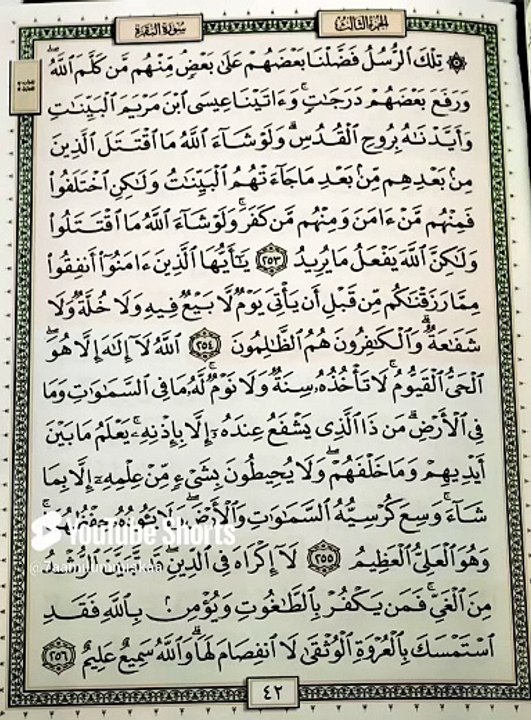 سُورَةُ البَقَرَةِ
الجُزْءُ الثَّالِثُ
۞ تِلْكَ ٱلرُّسُلُ فَضَّلْنَا بَعْضَهُمْ عَلَىٰ بَعْضٍ مِّنْهُم مَّن كَلَّمَ ٱللَّهُ
وَرَفَعَ بَعْضَهُمْ دَرَجَٰتٍ وَءَاتَيْنَا عِيسَى ٱبْنَ مَرْيَمَ ٱلْبَيِّنَٰتِ
وَأَيَّدْنَٰهُ بِرُوحِ ٱلْقُدُسِ وَلَوْ شَآءَ ٱللَّهُ مَا ٱقْتَتَلَ ٱلَّذِينَ
مِنۢ بَعْدِهِم مِّنۢ بَعْدِ مَا جَآءَتْهُمُ ٱلْبَيِّنَٰتُ وَلَٰكِنِ ٱخْتَلَفُوا۟
فَمِنْهُم مَّنْ ءَامَنَ وَمِنْهُم مَّن كَفَرَ وَلَوْ شَآءَ ٱللَّهُ مَا ٱقْتَتَلُوا۟
وَلَٰكِنَّ ٱللَّهَ يَفْعَلُ مَا يُرِيدُ ٢٥٣ يَٰٓأَيُّهَا ٱلَّذِينَ ءَامَنُوٓا۟ أَنفِقُوا۟
مِمَّا رَزَقْنَٰكُم مِّن قَبْلِ أَن يَأْتِىَ يَوْمٌ لَّا بَيْعٌ فِيهِ وَلَا خُلَّةٌ وَلَا
شَفَٰعَةٌ وَٱلْكَٰفِرُونَ هُمُ ٱلظَّٰلِمُونَ ٢٥٤ ٱللَّهُ لَآ إِلَٰهَ إِلَّا هُوَ
ٱلْحَىُّ ٱلْقَيُّومُ لَا تَأْخُذُهُۥ سِنَةٌ وَلَا نَوْمٌ لَّهُۥ مَا فِى ٱلسَّمَٰوَٰتِ وَمَا
فِى ٱلْأَرْضِ مَن ذَا ٱلَّذِى يَشْفَعُ عِندَهُۥٓ إِلَّا بِإِذْنِهِۦ يَعْلَمُ مَا بَيْنَ
أَيْدِيهِمْ وَمَا خَلْفَهُمْ وَلَا يُحِيطُونَ بِشَىْءٍ مِّنْ عِلْمِهِۦٓ إِلَّا بِمَا
شَآءَ وَسِعَ كُرْسِيُّهُ ٱلسَّمَٰوَٰتِ وَٱلْأَرْضَ وَلَا يَـُٔودُهُۥ حِفْظُهُمَا
YouTube Shorts
وَهُوَ ٱلْعَلِىُّ ٱلْعَظِيمُ ٢٥٥ لَآ إِكْرَاهَ فِى ٱلدِّينِ قَد تَّبَيَّنَ ٱلرُّشْدُ
مِنَ ٱلْغَىِّ فَمَن يَكْفُرْ بِٱلطَّٰغُوتِ وَيُؤْمِنۢ بِٱللَّهِ فَقَدِ
ٱسْتَمْسَكَ بِٱلْعُرْوَةِ ٱلْوُثْقَىٰ لَا ٱنفِصَامَ لَهَا وَٱللَّهُ سَمِيعٌ عَلِيمٌ ٢٥٦
٤٢